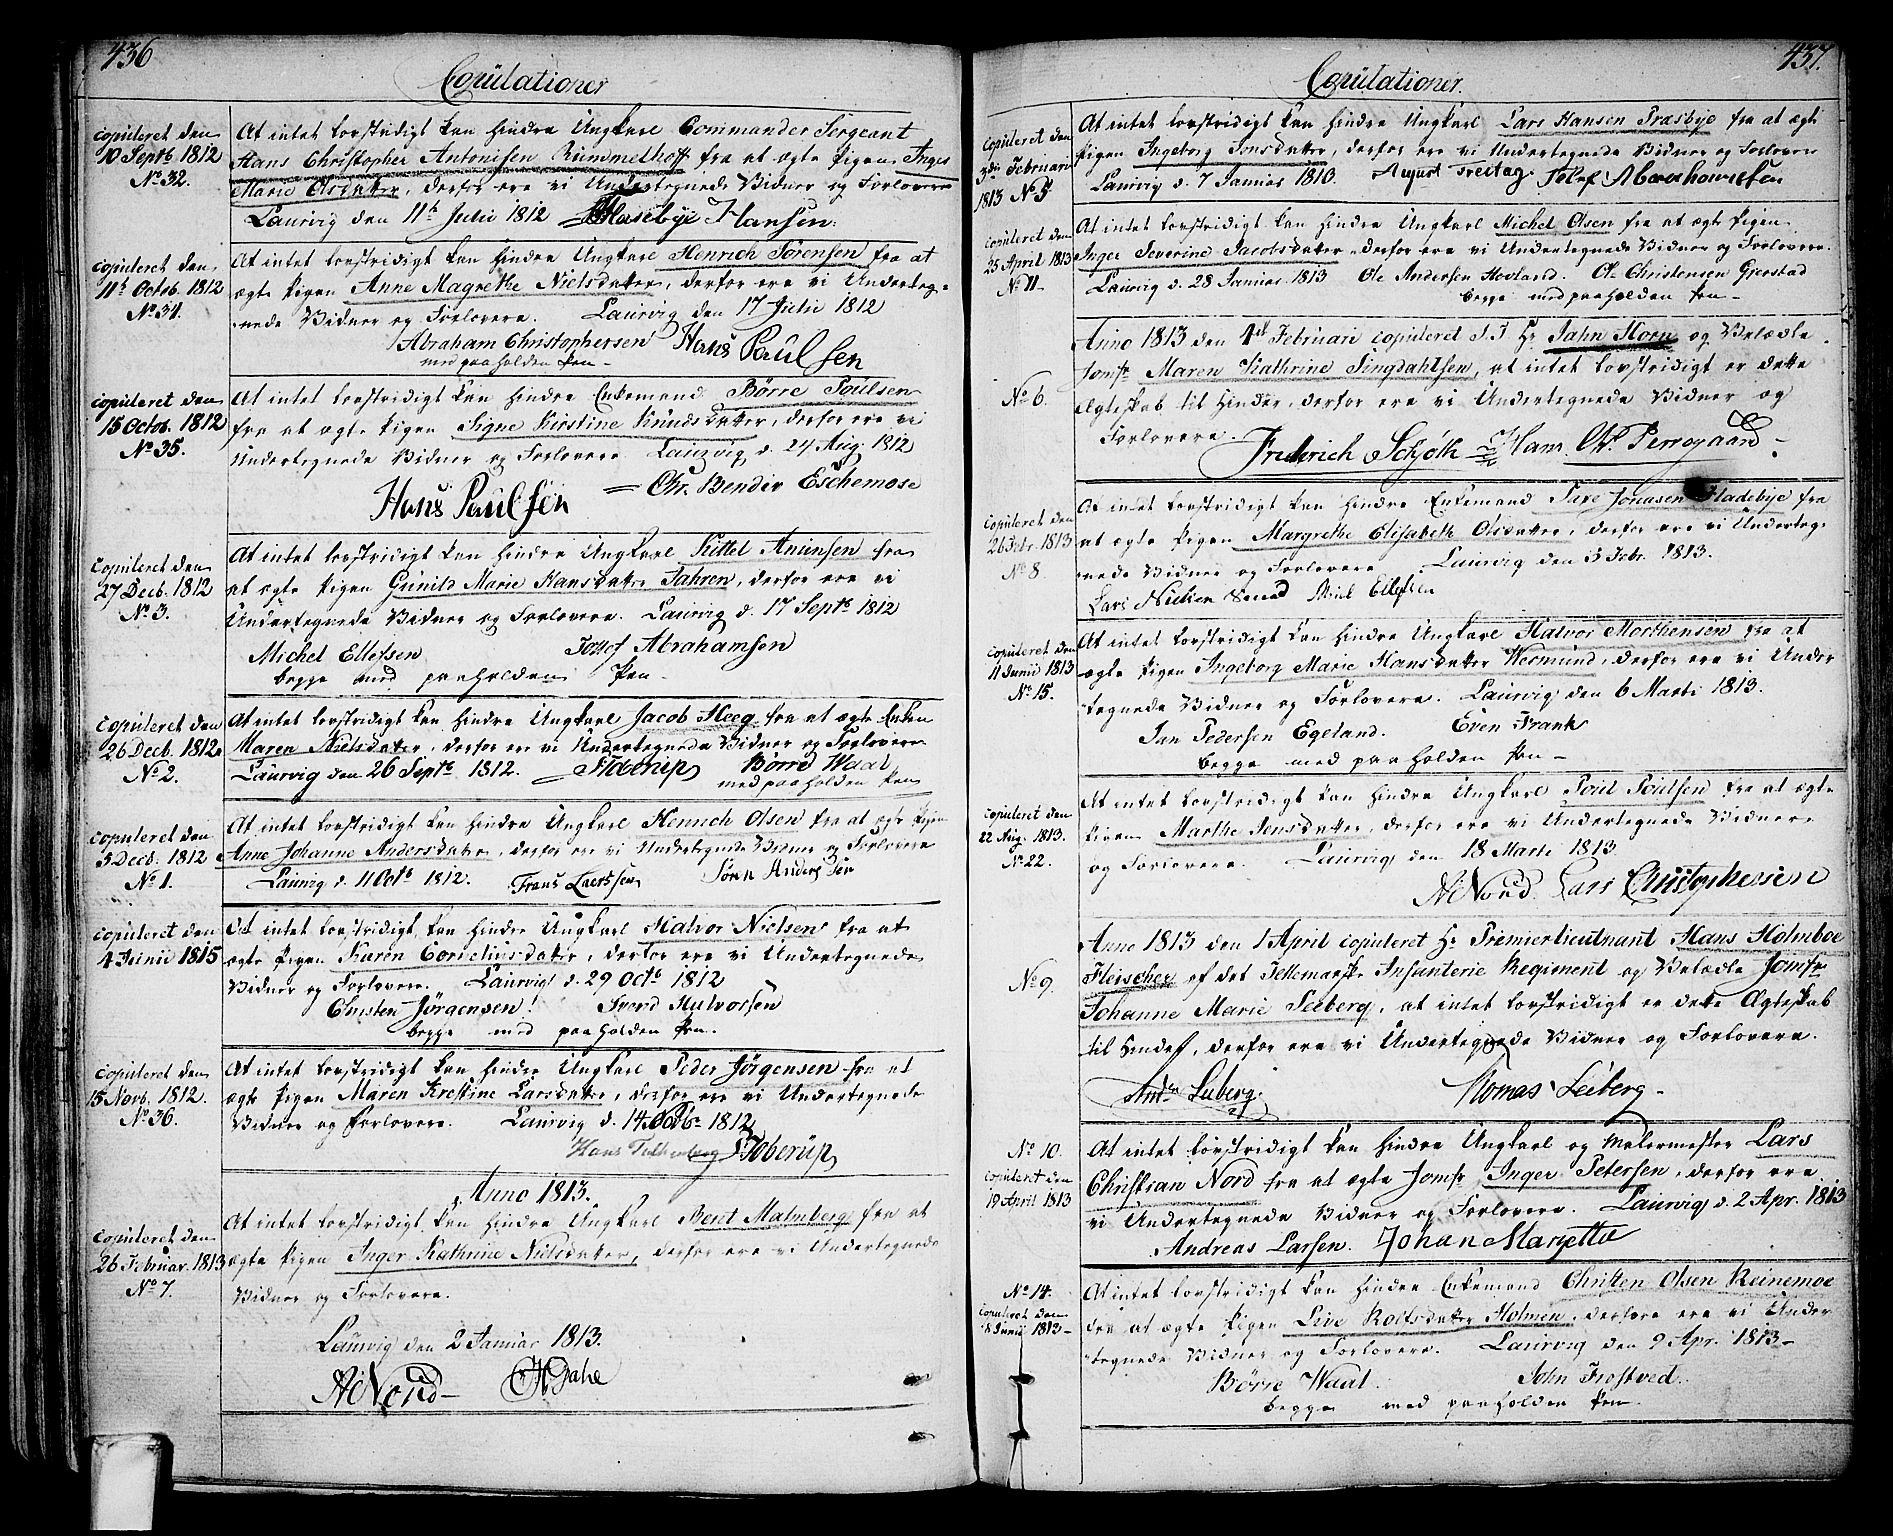 436
Copulationer
copuleret den
10 Septb 1812
No. 32.
At intet lovstridigt kan hindre Ungkarl Commander Sergeant
Hans Christopher Antonisen Rummelhoff fra at ægte Pigen Inger
Marie Olsdatter, derfor ere vi Undertegnede Vidner og Forlovere
Laurvig den 11te Julii 1812 Hasebye Hansen.
copuleret den
11te Octob. 1812
No. 34.
At intet lovstridigt kan hindre Ungkarl Henrich Sørensen fra at
ægte Pigen Anne Magrethe Nielsdatter, derfor ere vi Underteg-
nede Vidner og Forlovere. Laurvig den 17 Julii 1812
Abraham Christophersen Hans Paulsen
med paaholden Pen
copuleret den
15 Octob. 1812
No. 35.
At intet lovstridigt kan hindre Enkemand Børre Poulsen
fra at ægte Pigen Signe Kirstine Knudsdatter, derfor ere vi
Undertegnede Vidner og Forlovere Laurvig d. 24 Aug. 1812
Hans Paulsen Chr. Bendix Eschemose
copuleret den
27 Decb. 1812
No. 3.
At intet lovstridigt kan hindre Ungkarl Kittel Amunsen fra
at ægte Pigen Gunild Marie Hansdatter Fahren, derfor ere vi
Undertegnede Vidner og Forlovere. Laurvig d. 17 Septb 1812
Michel Ellefsen Abrahamsen
begge med paaholden Pen
copuleret den
26 Decb. 1812
No. 2.
At intet lovstridigt kan hindre Ungkarl Jacob Heeg fra at ægte Enken
Maren Nielsdatter, derfor ere vi Undertegnede Vidner og Forlovere
Laurvig den 26 Septb 1812. Børre Waal
med paaholden Pen
copuleret den
5 Decb. 1812
No. 1.
At intet lovstridigt kan hindre Ungkarl Henrich Olsen fra at ægte Pigen
Anne Johanne Andersdatter, derfor ere vi Undertegnede Vidner og Forlovere
Laurvig d. 11 Octb 1812. Frans Laerssen Søren Anderssen
copuleret den
4 Junii 1815
At intet lovstridigt kan hindre Ungkarl Halvor Nielsen fra at
ægte Pigen Karen Corneliusdatter, derfor ere vi Undertegnede
Vidner og Forlovere. Laurvig d. 29 Octb 1812
Christen Jørgensen Halvorsen
begge med paaholden Pen.
copuleret den
15 Novb. 1812.
No. 36.
At intet lovstridigt kan hindre Ungkarl Peder Jørgensen fra at
ægte Pigen Maren Krestine Larsdatter, derfor ere vi Undertegnede
Vidner og Forlovere. Laurvig d. 14 Octb 1812
Hans
Anno 1813.
copuleret den
26 Februar. 1813
No. 7.
At intet lovstridigt kan hindre Ungkarl Berit Malmberg fra at
ægte Pigen Inger Kathrine Nielsdatter, derfor ere vi Undertegnede
Vidner og Forlovere.
Laurvig den 2 Januar 1813.
Nord
437.
Copulationer.
copuleret den
3die Februarii
1813 No 5
At intet lovstridigt kan hindre Ungkarl Lars Hansen Fræsbye fra at ægte
Pigen Ingeborg Jonsdatter, derfor ere vi Undertegnede Vidner og Forlovere
Laurvig d. 7 Januar 1813 August Freitag
copuleret den
25 April 1813
No. 11.
At intet lovstridigt kan hindre Ungkarl Michel Olsen fra at ægte Pigen
Inger Severine Jacobsdatter, derfor ere vi Undertegnede Vidner og Forlovere.
Laurvig d. 28 Januar 1813 Ole Andersen Hovland. Ole Christensen Gierstad
begge med paaholden Pen
No 6.
Anno 1813 den 4de Februari copuleret S.T Hr Jahn Horn og Velædle
Jomfr Maren Kathrine Lingdahlsen, at intet lovstridigt er dette
Ægteskab til Hinder, derfor ere vi Undertegnede Vidner og
Forlovere. Frederich Schjøth Hans Chr.
copuleret den
26 Febr. 1813
No 8.
At intet lovstridigt kan hindre Enkemand Jonasen Fladebye fra
at ægte Pigen Margrethe Elisabeth Olsdatter, derfor ere vi Underteg-
nede Vidner og Forlovere Laurvig den 5 Febr. 1813.
Lars Nielsen Ellefsen
copuleret den
11 Junii 1813
No. 15.
At intet lovstridigt kan hindre Ungkarl Halvor Morthensen fra at
ægte Pigen Ingeborg Marie Hansdatter Wermund, derfor ere vi Under
tegnede Vidner og Forlovere. Laurvig den 6 Marti 1813.
Jan Pedersen Egeland. Even Frank
begge med paaholden Pen
copuleret den
22 Aug. 1813.
No. 22.
At intet lovstridigt kan hindre Ungkarl Poul Poulsen fra at ægte
Pigen Marthe Jensdatter, derfor ere vi Undertegnede Vidner
og Forlovere. Laurvig den 18 Marti 1813
Nord. Lars Christophersen
No 9.
Anno 1813 den 1 April copuleret Hr Premierlieutnant Hans Holmboe
Fleischer af det Tellemarske Infanterie Regiment og Velædle Jomfr
Johanne Marie Seeberg, at intet lovstridigt er dette Ægteskab
til Hinder, derfor ere vi Undertegnede Vidner og Forlovere.
Seeberg. Thomas Seeberg
No 10.
copuleret den
19 April 1813
At intet lovstridigt kan hindre Ungkarl og Malermester Lars
Christian Nord fra at ægte Jomfr Inger Petersen, derfor ere
vi Undertegnede Vidner og Forlovere. Laurvig d. 2 Apr. 1813
Andreas Larsen. Johan
No 14.
copuleret den
8 Junii 1813
At intet lovstridigt kan hindre Enkemand Christen Olsen Reinemoe
fra at ægte Pigen Live Rolfsdatter Holmen, derfore ere vi Under
tegnede Vidner og Forlovere. Laurvig den 9 Apr. 1813
Børre Waal. John Frostved.
begge med paaholden Pen.